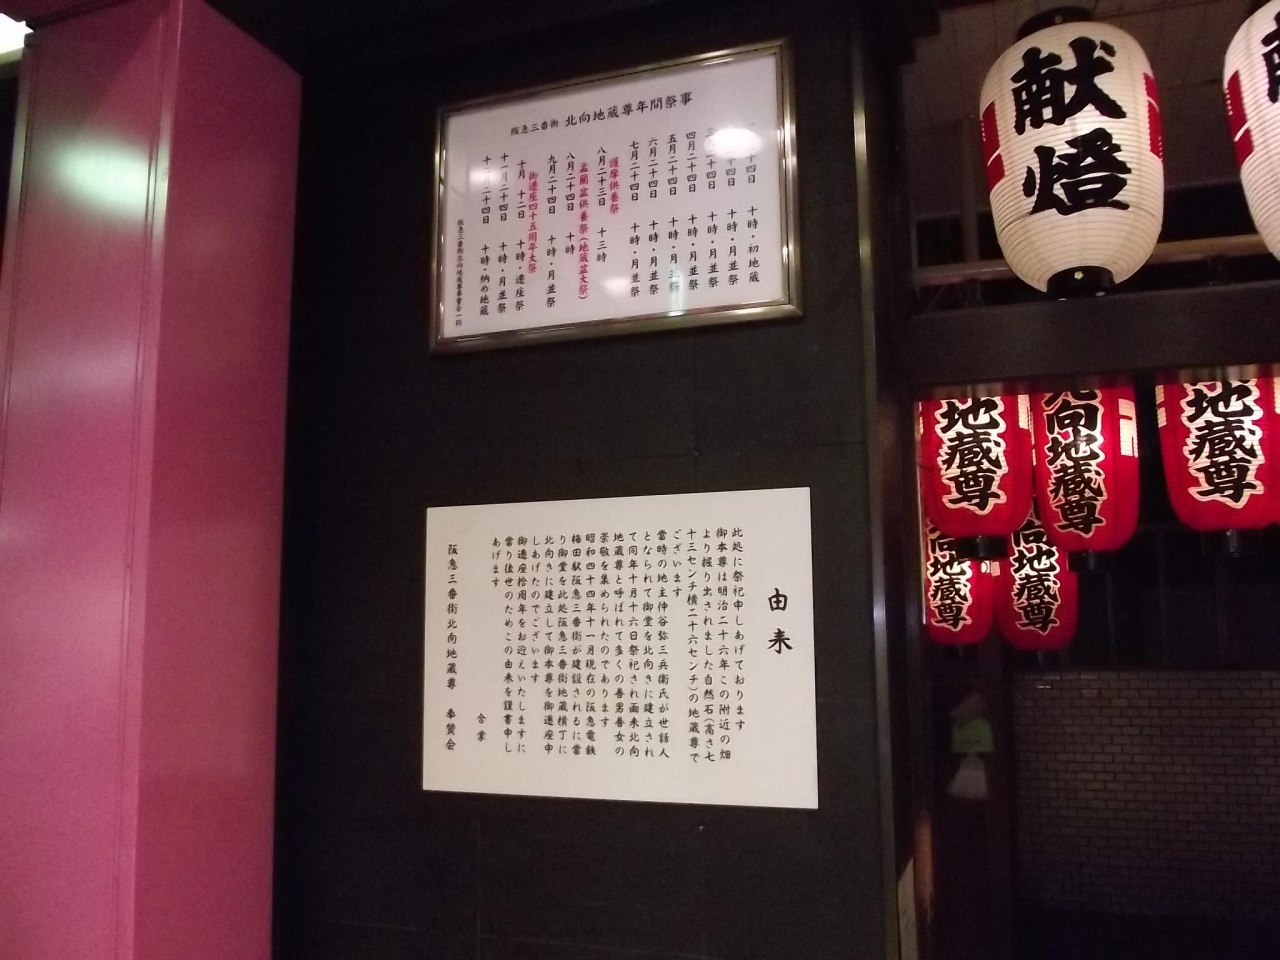 阪急三番街 北向地蔵尊年間祭事
十四日 十時・初地蔵
十四日 十時・月並祭
二十四日 十時・月並祭
四月二十四日 十時・月並祭
五月二十四日 十時・月並祭
六月二十四日 十時・月並祭
七月二十四日 十時・月並祭
護摩供養祭
八月二十三日 十三時
盂蘭盆供養祭(地蔵盆大祭)
八月二十四日 十時
九月二十四日 十時・月並祭
御遷座四十五周年大祭
十月 十二日 十時・遷座祭
十一月二十四日 十時・月並祭
十二月二十四日 十時・納め地蔵
阪急三番街北向地蔵尊奉賛会一同
由来
此処に祭祀申しあげております
御本尊は明治二十六年この附近の畑
より掘り出されました自然石(高さ七
十三センチ横二十六センチ)の地蔵尊で
ございます
當時の地主仲谷弥三兵衛氏が世話人
となられて御堂を北向きに建立され
て同年十月十六日祭祀され爾来北向
地蔵尊と呼ばれて多くの善男善女の
崇敬を集められたのであります
昭和四十四年十一月現在の阪急電鉄
梅田駅阪急三番街が建設されるに當
り御堂を此処阪急三番街地蔵横丁に
北向きに建立して御本尊を御遷座申
しあげたのでございます
御遷座拾周年をお迎えいたしますに
當り後世のためこの由来を謹書申し
あげます
合掌
阪急三番街北向地蔵尊 奉賛会
献燈
地蔵尊
北向地蔵尊
地蔵尊
向地蔵尊
向地蔵尊